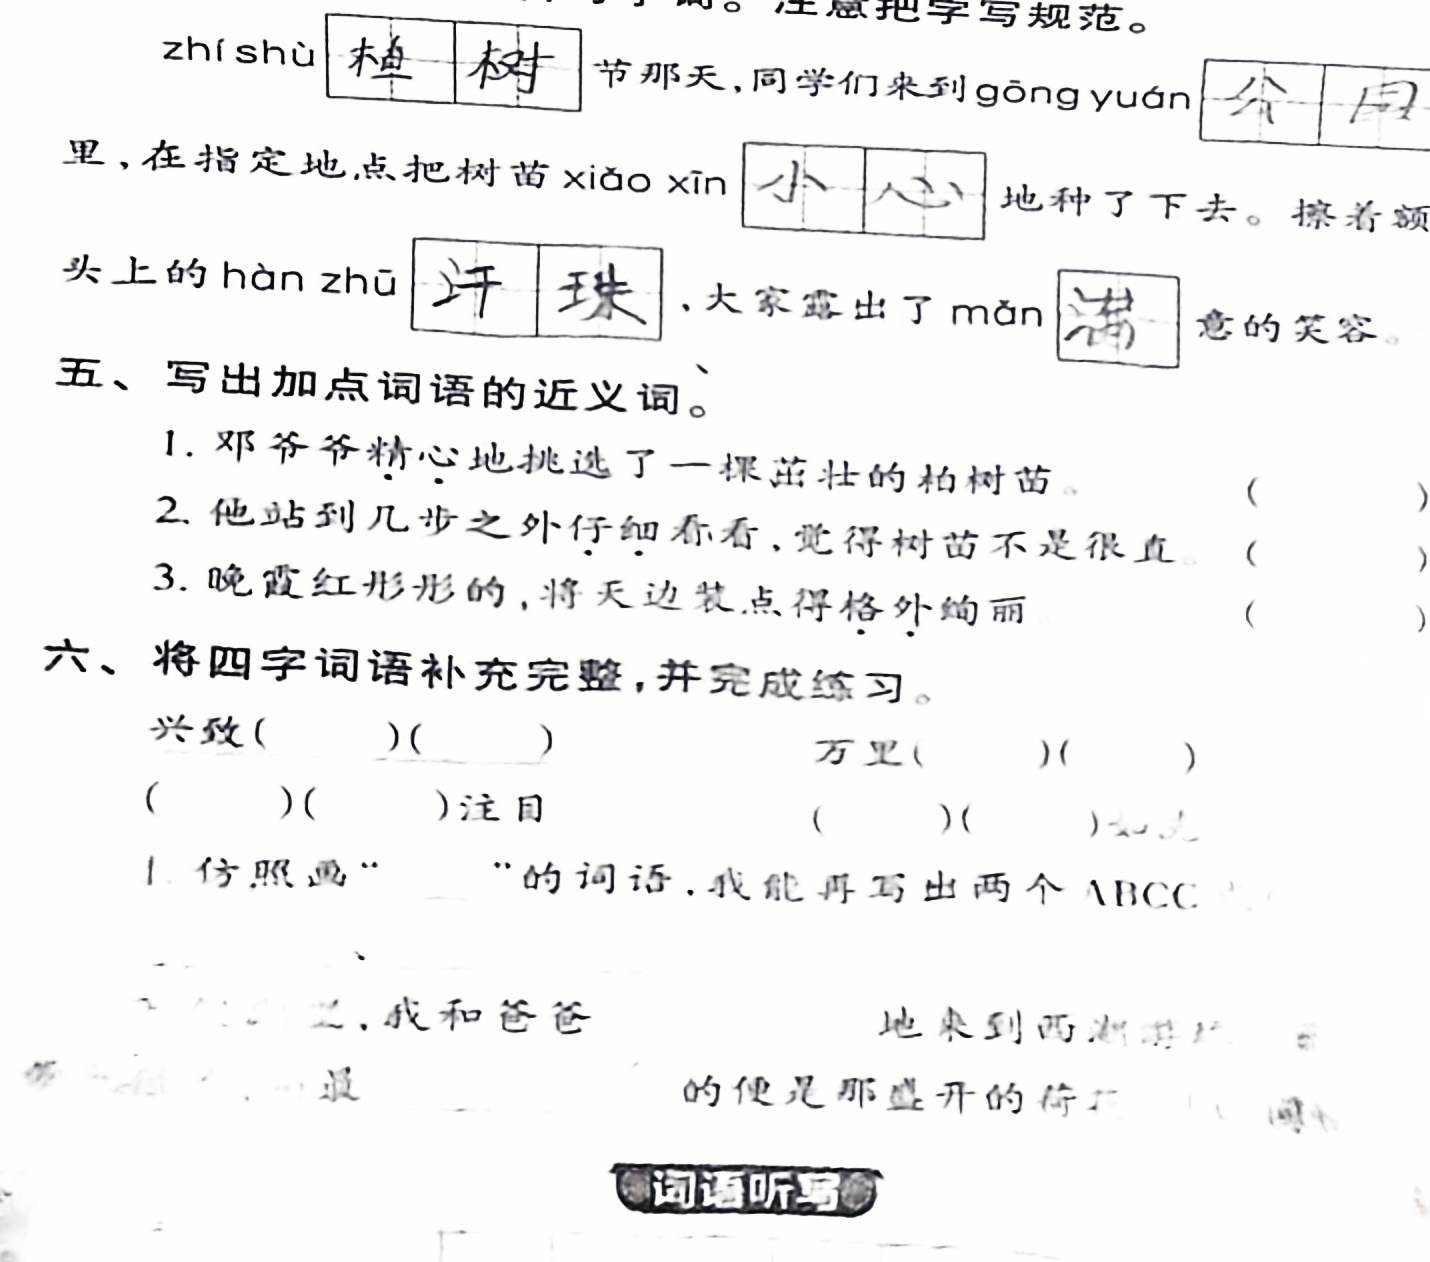 注意把字写规范。
zhí shù 植树 节那天,同学们来到 gōng yuán 公
里,在指定地点把树苗 xiǎo xīn 小心 地种了下去。擦着额
头上的 hàn zhū 汗珠 、大家露出了 mǎn 满 意的笑容。
五、写出加点词语的近义词。
1. 邓爷爷精心地挑选了一棵茁壮的柏树苗。 ( )
2. 他站到几步之外仔细看看,觉得树苗不是很直。 ( )
3. 晚霞红彤彤的,将天边装点得格外绚丽 ( )
六、将四字词语补充完整,并完成练习。
兴致( )( ) 万里( )( )
( )( )注目 ( )( )
1. 仿照画“ ”的词语,我能再写出两个 ABCC
,我和爸爸 地来到西
最 的便是那盛开的荷
词语听写